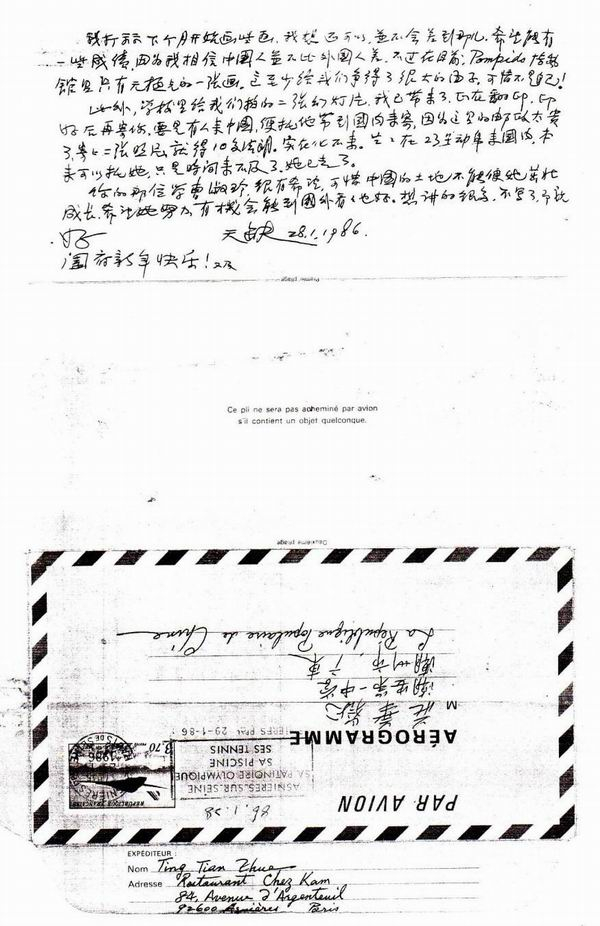 我打示下个月开始画些画，我想还可以，並不会差到那儿。希望能有
一些成绩，因为我相信中国人並不比外国人差，不过在目前，Pompido
馆里只有无极先的一张画。这至少给我们争得了很大的面子，可惜不是自己！
此外，学校里给我们拍的二张幻灯片，我已带来了，正在翻印，印
好后再寄你，要是有人来中国，便托他带到国内来寄，因为这里的邮政太贵
了，寄一二张照片就得10多法朗。实在化不来。兰兰在23号动身来国内，本
来可以托她，只是时间来不及了，她已走了。
你的那位学曹 很有希望，可惜中国的土地不能使她茁壮
成长，希望她努力有机会能到国外看看也好。想讲的很多，不写了，祝
好 天 28.1.1986.
阖府新年快乐！又及
Premier pliage
Ce pli ne sera pas acheminé par avion
s'il contient un objet quelconque.
Deuxième pliage
La République Populaire de Chine
潮州市，广东
潮安第一中学
M 庄华
AÉROGRAMME
PAR AVION
RÉPUBLIQUE FRANÇAISE
3,70
1986
29-1-86
ASNIERES-SUR-SEINE
SA PATINOIRE OLYMPIQUE
SA PISCINE
SES TENNIS
86.1.28
EXPÉDITEUR :
Nom Ting Tian Zhue
Adresse Restaurant Chez Kam
84, Avenue d'Argenteuil
92600 Asnières Paris